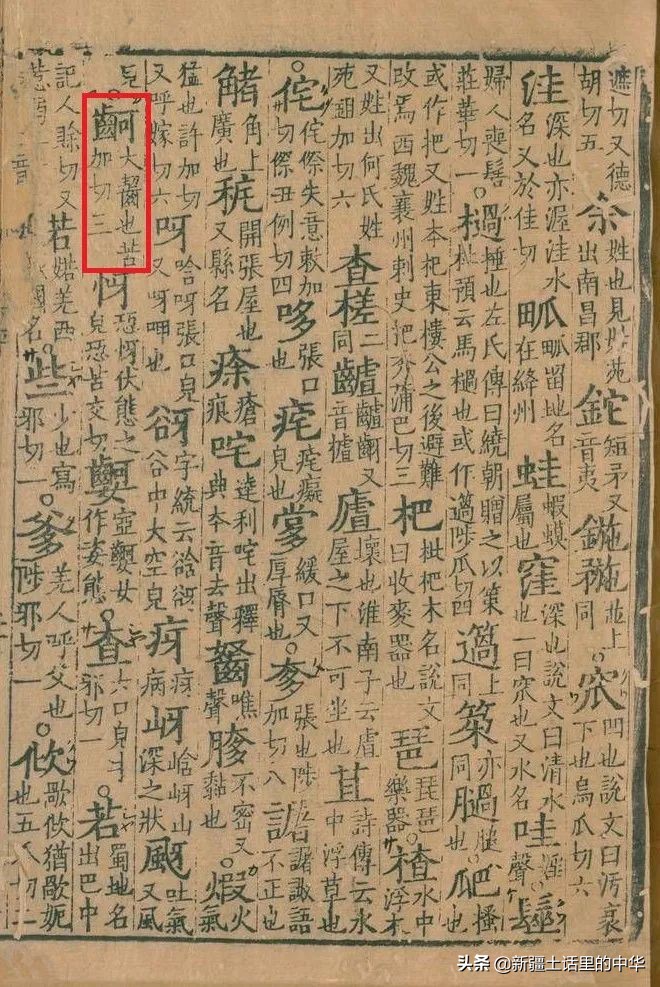 遮切又德胡切五 佘 姓也見姓苑出南昌郡 䤬 短矛又音夷 鍦䄬 並上同 ○窊 凹也說文曰汚衺下也烏瓜切六
洼 深也亦渥洼水名又於佳切 畖 畖留地名在絳州 蛙 蝦蟆屬也 窪 深也說文曰清水也一曰窊也又水名 哇 淫聲 ○髽
婦人喪髻莊華切一 ○檛 棰也左氏傳曰繞朝贈之以策杜預云馬檛也或作簻陟瓜切四 簻 上同 築 亦同 膼 腿也 ○爬 搔
或作把又姓本杞東樓公之後避難改焉西魏襄州刺史把秀蒲巴切三 杷 枇杷木名說文曰收麥器也 琶 琵琶樂器 ○楂 水中浮木
又姓出何氏姓苑鉏加切六 查槎 二同 齇 㢒 壞也淮南子云㢒屋之下不可坐也 苴 詩傳云水中浮草也
○侘 侘傺失意敕加切傺丑例切四 哆 張口也 㾴癡皃也 緩口又厚脣也 ○奓 張也陟加切八 譇 譇詉語不正也
觰 角上廣也 秅 開張屋也又縣名 瘡痕 咤 達利咤出釋典本音去聲 噍聲 不密又黏也 ○煆 火氣
猛也許加切又呼嫁切六 呀 唅呀張口皃又呀呷也 谺 字統云谽谺谷中大空皃 疨 疨病 岈 谽岈山深之狀 颬 吐氣又風
皃 ○䶗 大齧也苦加切三 㤉 恐㤉伏態之皃恐苦交切 作姿態 ○查 大口皃才邪切一 ○若 蜀地名出巴中
記人賒切又 若 婼羌西國名 ○些 少也寫邪切一 ○爹 羌人呼父也陟邪切一 ○㰲 歇㰲猶歇妮也五瓜切二
头条 @新疆土话里的中华